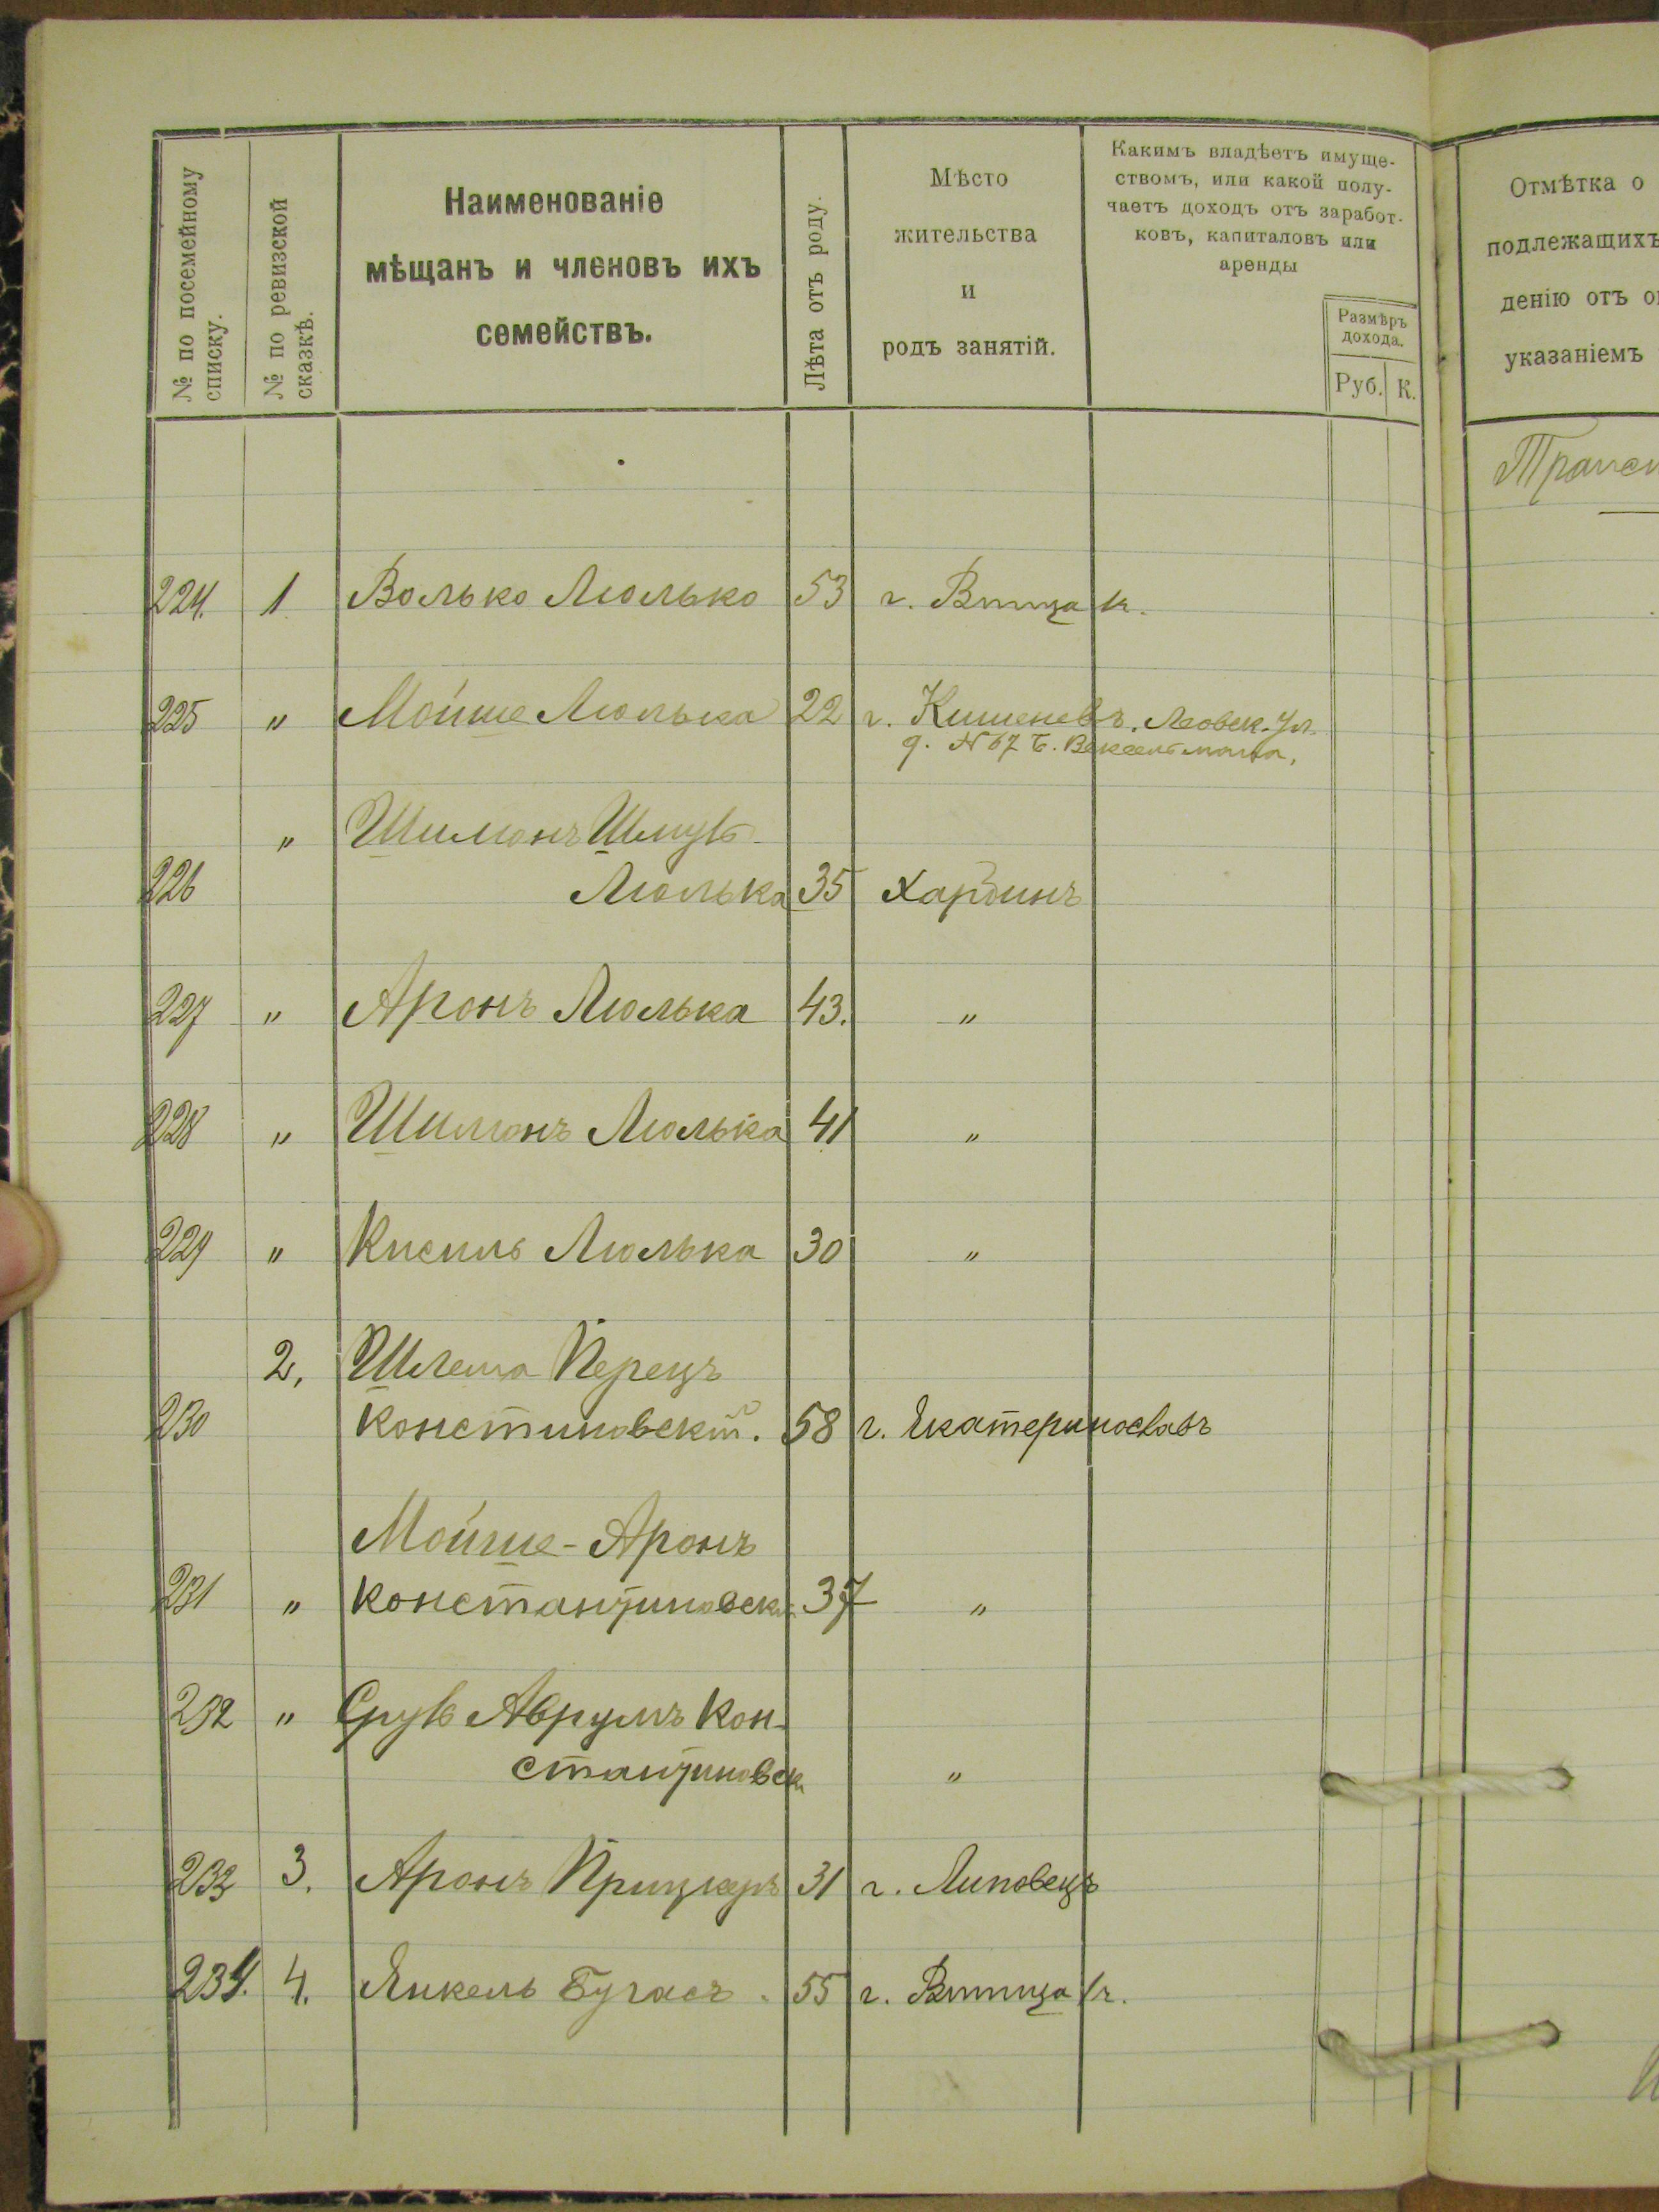 № по посемейному
списку.
№ по ревизской
сказкѣ.
Наименованіе
мѣщанъ и членовъ ихъ
семействъ.
Лѣта отъ роду.
Мѣсто
жительства
и
родъ занятій.
Какимъ владѣетъ имуще-
ствомъ, или какой полу-
чаетъ доходъ отъ заработ-
ковъ, капиталовъ или
аренды
Размѣръ
дохода.
Руб. К.
Отмѣтка о
подлежащихъ
денію отъ
указаніемъ
224. 1 Волько Люлько 53 г.
225 " Мойше Люлька 22 г. Кишеневъ. Леовск. ул.
д. № 67 Б. Вексельмана,
" Шимонъ Шмуль
226 Люлька 35 Харбинъ
227 " Аронъ Люлька 43. "
228 " Шимонъ Люлька 41 "
229 " Кисиль Люлька 30 "
2, Шлема Перецъ
230 Констиновскій. 58 г. Екатеринославъ
Мойше-Аронъ
231 " Константиновск 37 "
232 " Сруль Аврумъ Кон-
стантиновск "
233 3. Аронъ Прицкеръ 31 г. Липовецъ
234. 4. Янкель Бугасъ. 55 г.